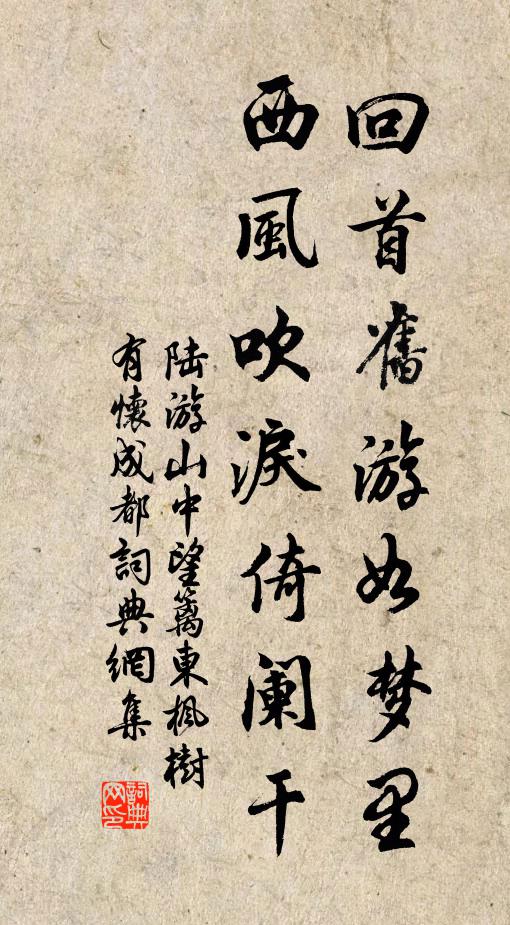 回首舊游如梦里
西風吹淚倚阑干
陆游山中望篱東枫樹
有懷成都詞典網集
詞典网印